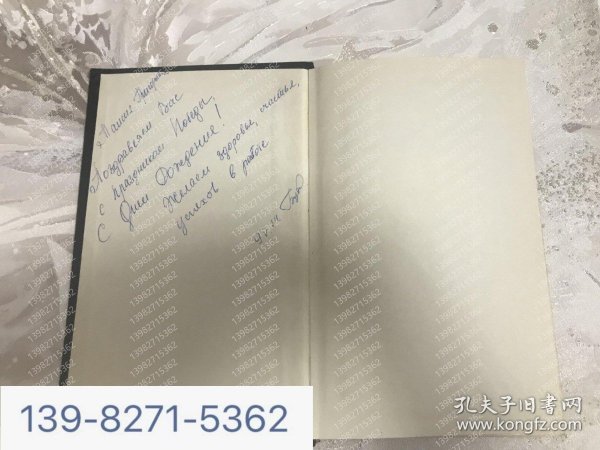 Поздравляем Вас
с праздником Победы,
С Днём Рождения!
Желаем здоровья, счастья,
успехов в работе
13982715362
139-8271-5362
孔夫子旧书网
www.kongfz.com